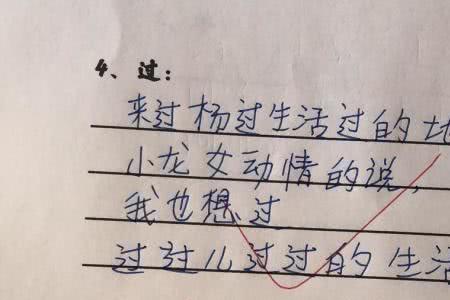 4、过：
来过杨过生活过的地
小龙女动情的说，
我也想过
过过儿过过的生活